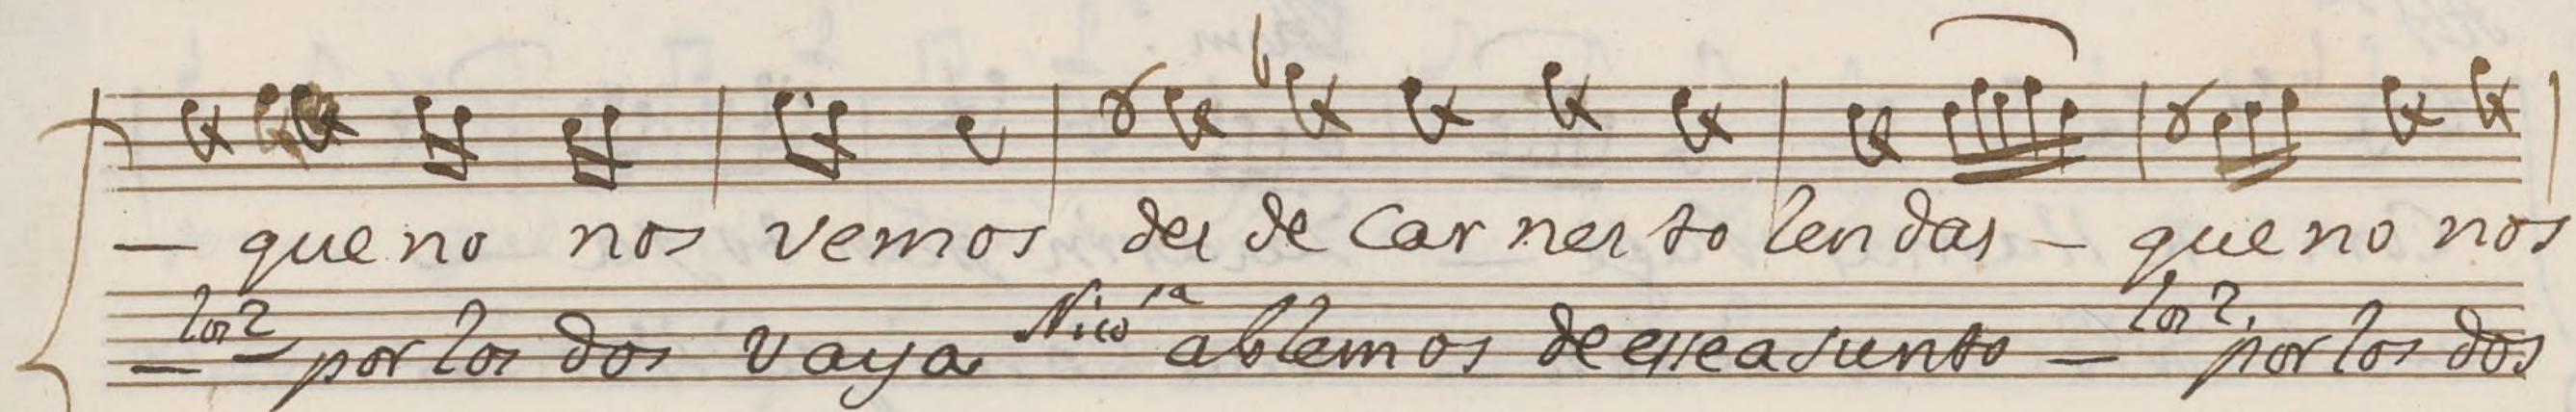 — que no nos vemos des de car nes to len das — que no nos
— los 2 — por los dos vaya Nico.ª ablemos de esse asunto — los 2. por los dos